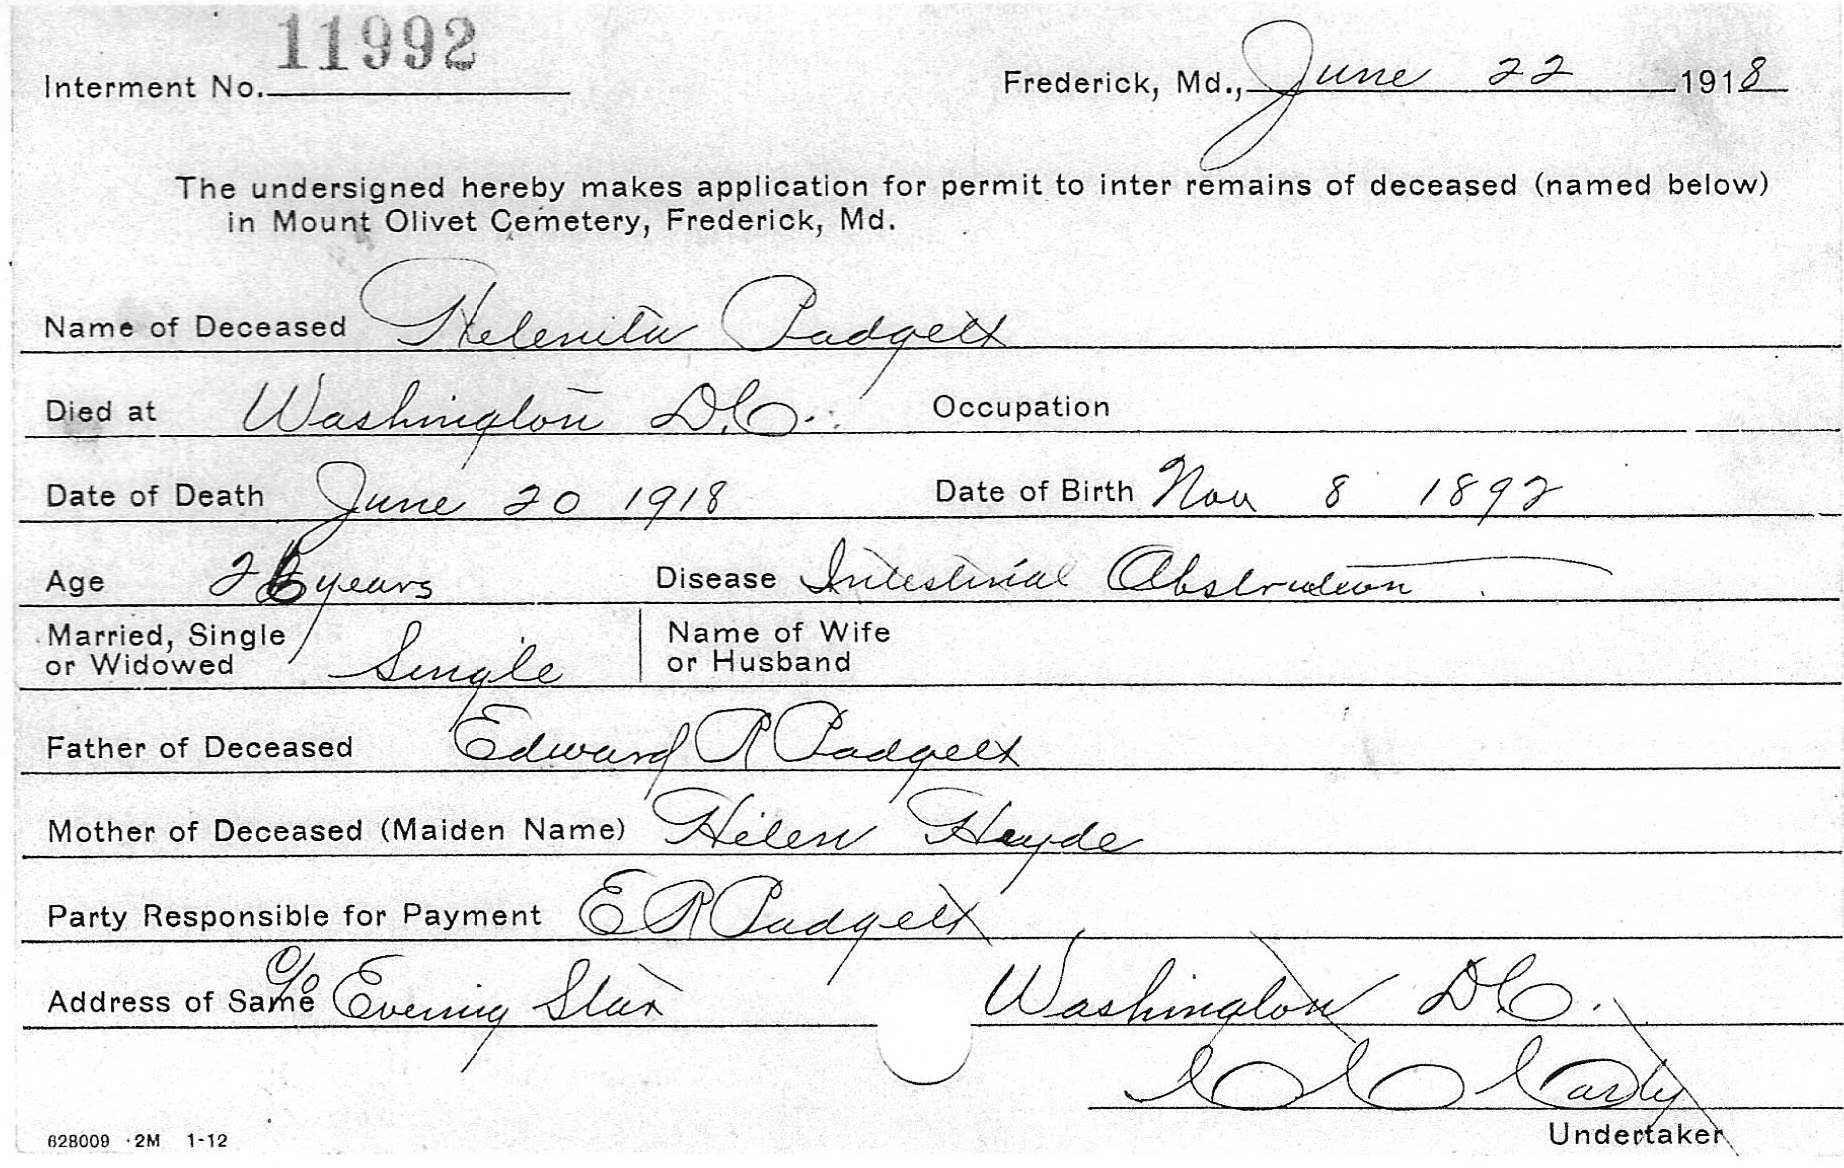 11992
Interment No.
Frederick, Md., June 22 1918
The undersigned hereby makes application for permit to inter remains of deceased (named below)
in Mount Olivet Cemetery, Frederick, Md.
Name of Deceased Helenita Padgett
Died at Washington D.C. Occupation
Date of Death June 20 1918 Date of Birth Nov 8 1892
Age years Disease Intestinal Obstruction
Married, Single or Widowed Single Name of Wife or Husband
Father of Deceased Edward R Padgett
Mother of Deceased (Maiden Name) Helen
Party Responsible for Payment E R Padgett
Address of Same c/o Evening Star Washington D.C.
Undertaker
628009 · 2M 1-12